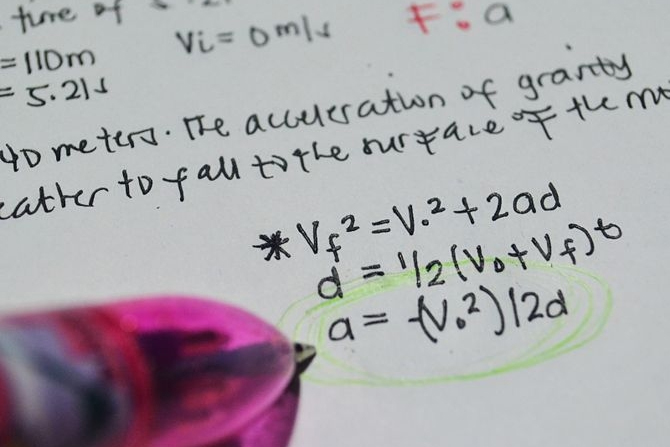 time of
= 110m
Vi = 0 m/s
F: a
= 5.21s
40 meters. The acceleration of gravity
feather to fall to the surface of the mo
* Vf² = V.² + 2ad
d = 1/2 (V0 + Vf) t
a = -(V.²) / 2d